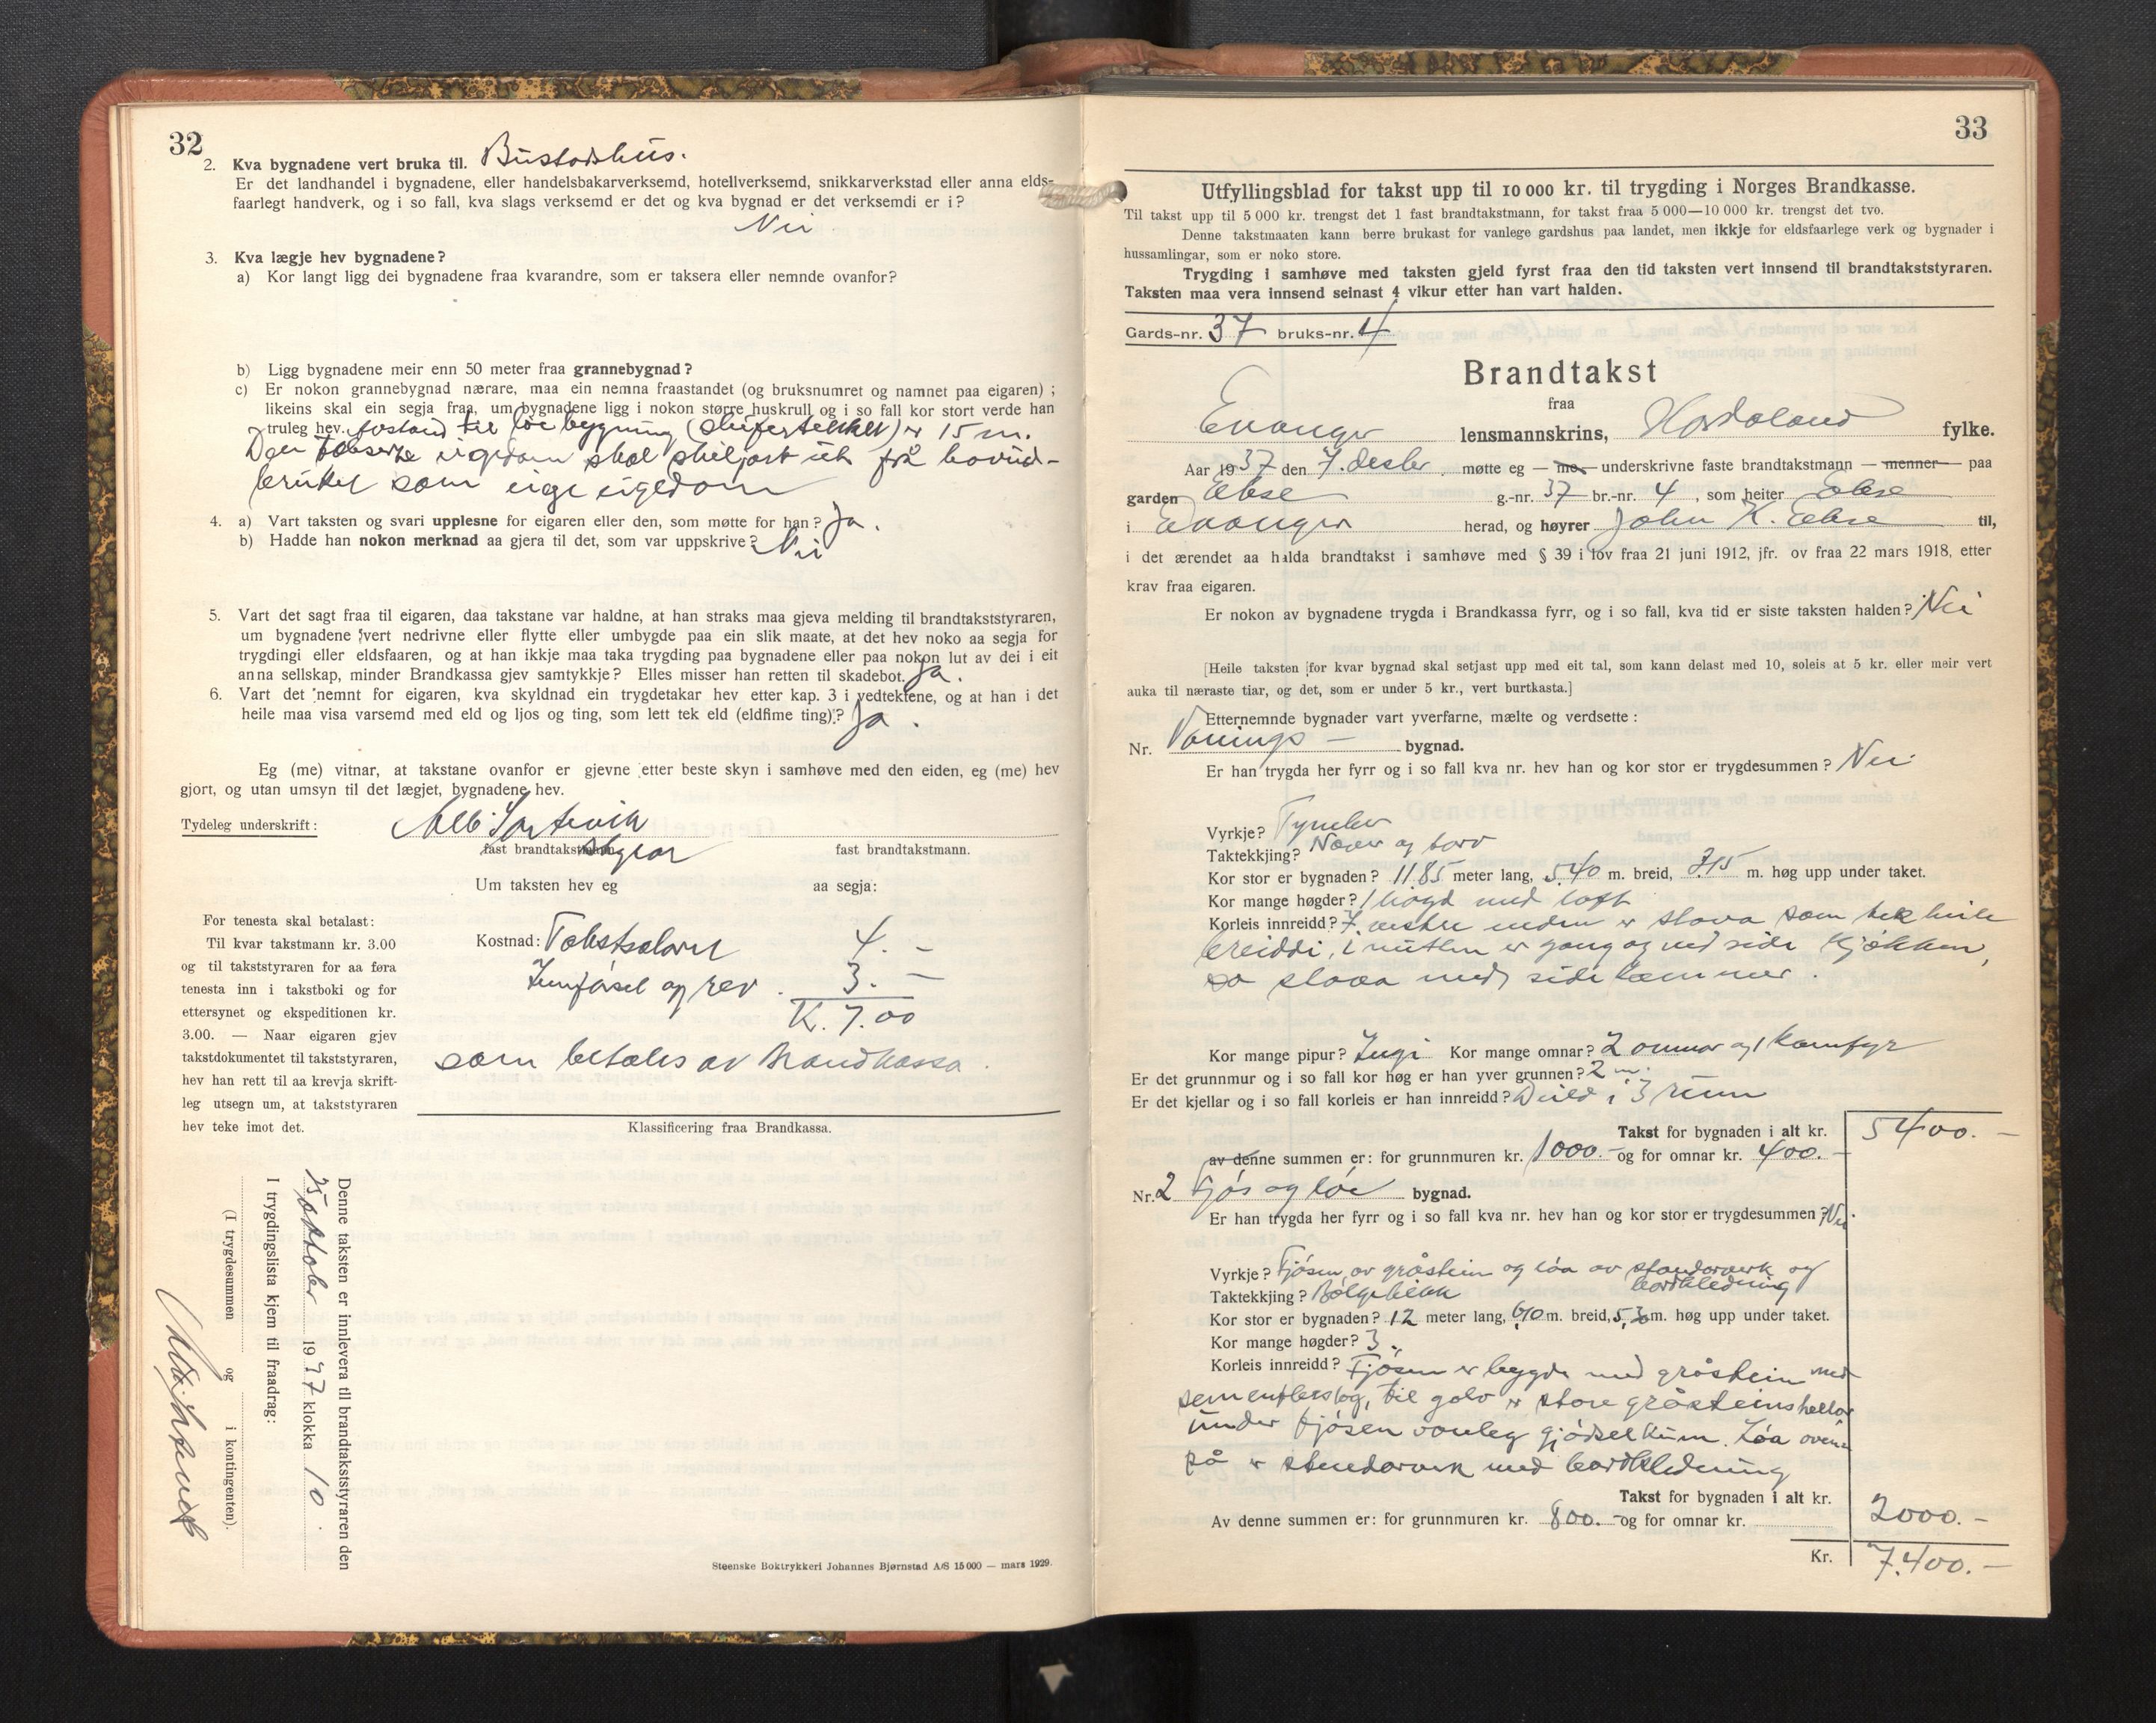 32
2. Kva bygnadene vert bruka til. Bustadshus.
Er det landhandel i bygnadene, eller handelsbakarverksemd, hotellverksemd, snikkarverkstad eller anna elds-
faarlegt handverk, og i so fall, kva slags verksemd er det og kva bygnad er det verksemdi er i?
Nei
3. Kva lægje hev bygnadene?
a) Kor langt ligg dei bygnadene fraa kvarandre, som er taksera eller nemnde ovanfor?
b) Ligg bygnadene meir enn 50 meter fraa grannebygnad?
c) Er nokon grannebygnad nærare, maa ein nemna fraastandet (og bruksnumret og namnet paa eigaren);
likeins skal ein segja fraa, um bygnadene ligg i nokon større huskrull og i so fall kor stort verde han
truleg hev. Avstand til løebygning (skifertekket) er 15 m.
Den takserte eigedom skal skiljast ut frå hovud-
bruket som eige eigedom
4. a) Vart taksten og svari upplesne for eigaren eller den, som møtte for han? Ja.
b) Hadde han nokon merknad aa gjera til det, som var uppskrive? Nei
5. Vart det sagt fraa til eigaren, daa takstane var haldne, at han straks maa gjeva melding til brandtakststyraren,
um bygnadene vert nedrivne eller flytte eller umbygde paa ein slik maate, at det hev noko aa segja for
trygdingi eller eldsfaaren, og at han ikkje maa taka trygding paa bygnadene eller paa nokon lut av dei i eit
anna sellskap, minder Brandkassa gjev samtykkje? Elles misser han retten til skadebot. Ja.
6. Vart det nemnt for eigaren, kva skyldnad ein trygdetakar hev etter kap. 3 i vedtektene, og at han i det
heile maa visa varsemd med eld og ljos og ting, som lett tek eld (eldfime ting)? Ja.
Eg (me) vitnar, at takstane ovanfor er gjevne etter beste skyn i samhøve med den eiden, eg (me) hev
gjort, og utan umsyn til det lægjet, bygnadene hev.
Tydeleg underskrift:
fast brandtakstmann styrar fast brandtakstmann.
Um taksten hev eg aa segja:
For tenesta skal betalast:
Til kvar takstmann kr. 3.00
og til takststyraren for aa føra
tenesta inn i takstboki og for
ettersynet og ekspeditionen kr.
3.00. — Naar eigaren gjev
takstdokumentet til takststyraren,
hev han rett til aa krevja skrift-
leg utsegn um, at takststyraren
hev teke imot det.
Kostnad: Takstsalær 4. -
Innførsel og rev. 3. -
K. 7.00
som betales av Brandkassa.
Klassificering fraa Brandkassa.
Denne taksten er innlevera til brandtakststyraren den
25 oktober 1937 klokka 10.
I trygdingslista kjem til fraadrag:
(I trygdesummen og i kontingenten).
Steenske Boktrykkeri Johannes Bjørnstad A/S 15000 — mars 1929.
33
Utfyllingsblad for takst upp til 10 000 kr. til trygding i Norges Brandkasse.
Til takst upp til 5 000 kr. trengst det 1 fast brandtakstmann, for takst fraa 5 000—10 000 kr. trengst det tvo.
Denne takstmaaten kann berre brukast for vanlege gardshus paa landet, men ikkje for eldsfaarlege verk og bygnader i
hussamlingar, som er noko store.
Trygding i samhøve med taksten gjeld fyrst fraa den tid taksten vert innsend til brandtakststyraren.
Taksten maa vera innsend seinast 4 vikur etter han vart halden.
Gards-nr. 37 bruks-nr. 4
Brandtakst
fraa
Evanger lensmannskrins, Hordaland fylke.
Aar 1937 den 7. desbr. møtte eg — me — underskrivne faste brandtakstmann — menner — paa
garden Ekse g.-nr. 37 br.-nr. 4, som heiter Ekse
i Evanger herad, og høyrer John K. Ekse til,
i det ærendet aa halda brandtakst i samhøve med § 39 i lov fraa 21 juni 1912, jfr. ov fraa 22 mars 1918, etter
krav fraa eigaren.
Er nokon av bygnadene trygda i Brandkassa fyrr, og i so fall, kva tid er siste taksten halden? Nei
[Heile taksten for kvar bygnad skal setjast upp med eit tal, som kann delast med 10, soleis at 5 kr. eller meir vert
auka til næraste tiar, og det, som er under 5 kr., vert burtkasta.]
Etternemnde bygnader vart yverfarne, mælte og verdsette:
Nr. Vånings- bygnad.
Er han trygda her fyrr og i so fall kva nr. hev han og kor stor er trygdesummen? Nei
Vyrkje? Tymber
Taktekkjing? Never og torv
Kor stor er bygnaden? 11.85 meter lang, 5.40 m. breid, 3.15 m. høg upp under taket.
Kor mange høgder? 1 høgd med loft
Korleis innreidd? I vestre enden er stova som tek heile
breiddi, i mitten er gang og ved sida kjøkken,
so stova med sidekammer.
Kor mange pipur? Ingi Kor mange omnar? 2 omnar og 1 komfyr
Er det grunnmur og i so fall kor høg er han yver grunnen? 2 m.
Er det kjellar og i so fall korleis er han innreidd? Deild i 3 rum
Takst for bygnaden i alt kr. 5400. -
av denne summen er: for grunnmuren kr. 1000. - og for omnar kr. 400. -
Nr. 2 Fjøs og løe bygnad.
Er han trygda her fyrr og i so fall kva nr. hev han og kor stor er trygdesummen? Nei.
Vyrkje? Fjøsen av gråstein og løa av standarverk og
bordkledning
Taktekkjing? Bølgeblikk
Kor stor er bygnaden? 12 meter lang, 6,10 m. breid, 5,3 m. høg upp under taket.
Kor mange høgder? 3.
Korleis innreidd? Fjøsen er bygde med gråstein med
sementbeslag, til golv er store gråsteinshellor
under fjøsen vanleg gjødselkum. Løa oven
på er standarverk med bordkledning
Takst for bygnaden i alt kr. 2000. -
Av denne summen er: for grunnmuren kr. 800. - og for omnar kr.
Kr. 7.400. -